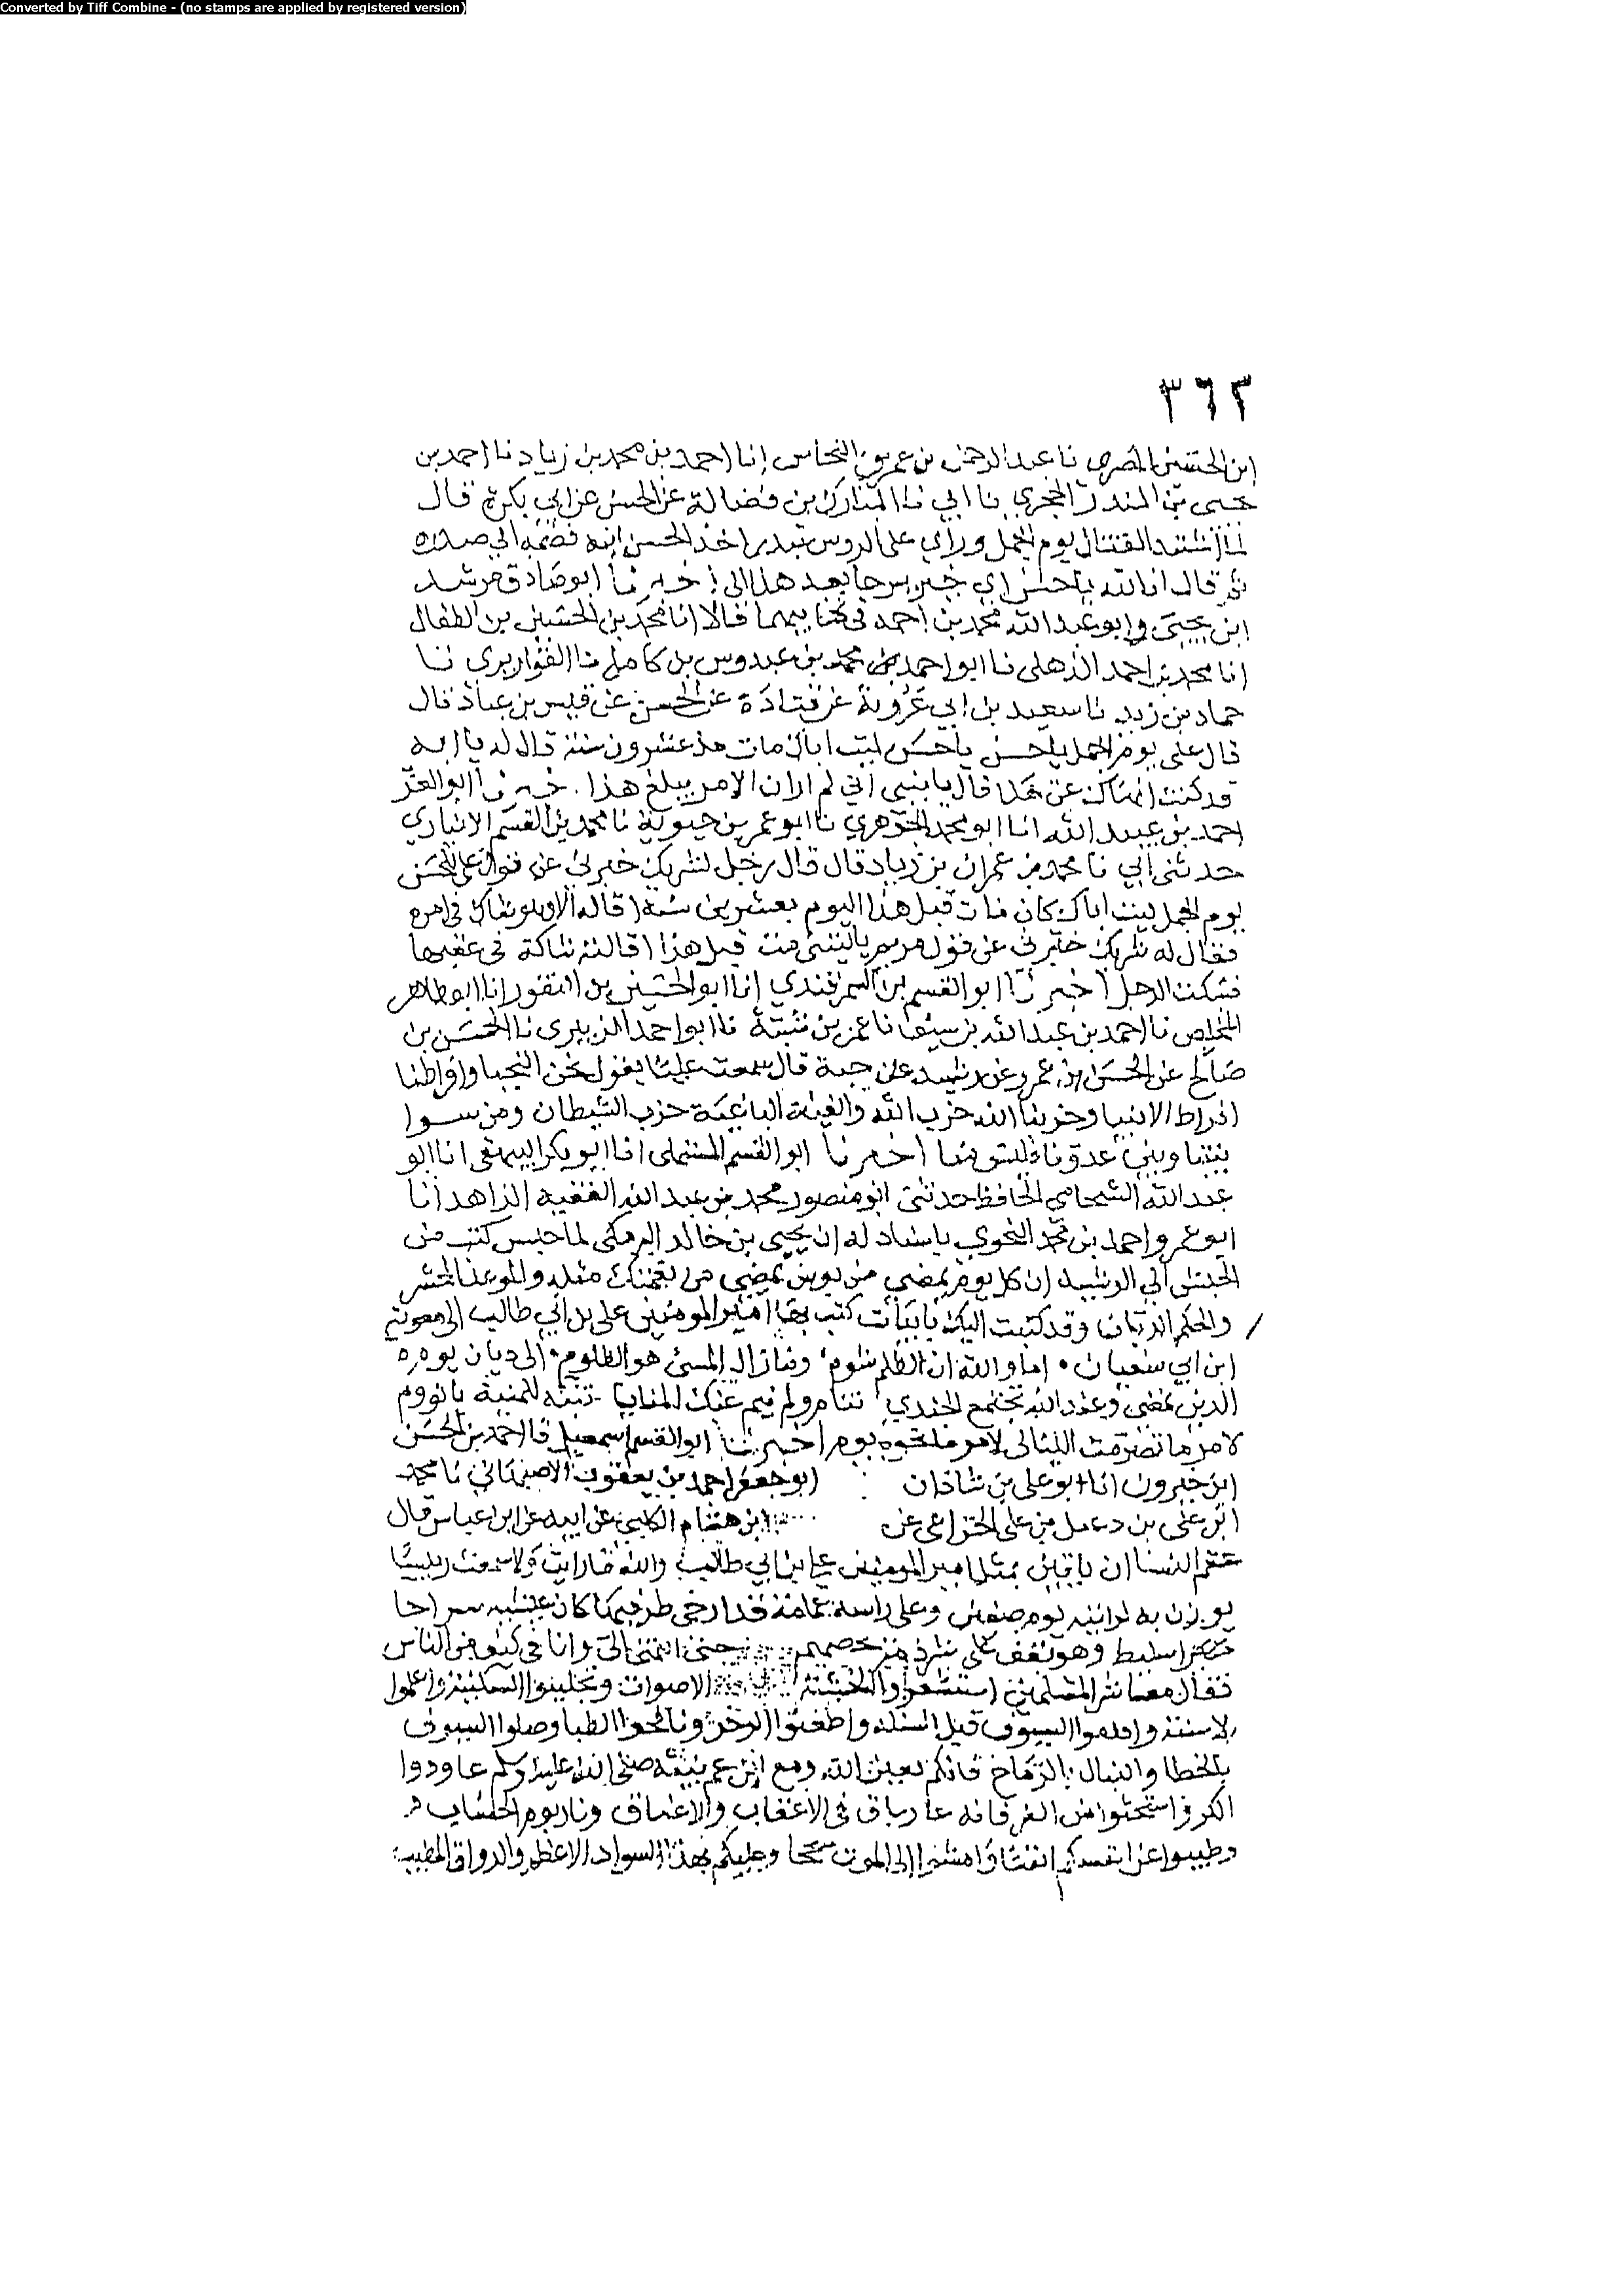 Converted by Tiff Combine - (no stamps are applied by registered version)
٣٦٢
ابن الحسين المصري نا عبد الرحمن بن عمر بن النحاس انا احمد بن محمد بن زياد نا احمد بن
يحيى بن المنذر الحجري نا ابي نا المبارك بن فضالة عن الحسن عن ابي بكرة قال
لما اشتد القتال يوم الجمل وراى علي الروس تندر اخذ الحسن ابنه فضمه الى صدره
ثم قال انا لله يا حسن اي خير يرجا بعد هذا الى اخبرنا ابو صادق مرشد
ابن يحيى وابو عبد الله محمد بن احمد في كتابيهما قالا انا محمد بن الحسين بن الطفال
انا محمد بن احمد الذهلي نا ابو احمد بن محمد بن عبدوس بن كامل نا القواريري نا
حماد بن زيد نا سعيد بن ابي عروبة عن قتادة عن الحسن عن قيس بن عباد قال
قال علي يوم الجمل يا حسن يا حسن ليت اباك مات مذ عشرون سنة قال له يا ابه
قد كنت انهاك عن هذا قال يا بني اني لم ار ان الامر يبلغ هذا . اخبرنا ابو العز
احمد بن عبيد الله انا ابو محمد الجوهري نا ابو عمر بن حيوية نا محمد بن القسم الانباري
حدثني ابي نا محمد بن عمران بن زياد قال قال رجل لشريك خبرني عن قول علي للحسن
يوم الجمل ليت اباك كان مات قبل هذا اليوم بعشرين سنة اقاله الا وهو شاك في امره
فقال له شريك خبرني عن قول مريم يا ليتني مت قبل هذا اقالته شاكة في عفتها
فسكت الرجل اخبرنا ابو القسم بن السمرقندي انا ابو الحسين بن النقور انا ابو طاهر
المخلص نا احمد بن عبد الله بن سيف نا عمر بن شبة نا ابو احمد الزبيري نا الحسن بن
صالح عن الحسن بن عمرو عن رشيد عن حبة قال سمعت عليا يقول نحن النجبا وافراطنا
افراط الانبيا وحزبنا الله حزب الله والفية الباغية حزب الشيطان ومن سوا
بيننا وبين عدونا فليس منا اخبرنا ابو القسم المستملي انا ابو بكر البيهقي انا ابو
عبد الله الشحامي الحافظ حدثني ابو منصور محمد بن عبد الله الفقيه الزاهد انا
ابو عمرو احمد بن محمد النحوي باسناد له ان يحيى بن خالد البرمكي لما حبس كتب من
الحبس الى الرشيد ان كل يوم يمضي من بوسي يمضي من نعمتك مثله والموعد المحشر
والحكم الديان وقد كتبت اليك بابيات كتب بها امير المومنين علي بن ابي طالب الى معوية
ابن ابي سفيان ٠ اما والله ان الظلم شوم ٠ وما زال المسئ هو الظلوم ٠ الى ديان يوم
الدين نمضي وعند الله تجتمع الخصوم تنام ولم تنم عنك المنايا تنبه للمنية يا نووم
لامر ما تصرمت الليالي لامر ما تحركت النجوم اخبرنا ابو القسم اسمعيل نا احمد بن الحسن
ابن خيرون انا ابو علي بن شاذان ابو جعفر احمد بن يعقوب الاصبهاني نا محمد
ابن علي بن دعبل بن علي الخزاعي عن ابن هشام الكلبي عن ابيه عن ابن عباس قال
عقم النسا ان ياتين بمثل امير المومنين علي بن ابي طالب والله ما رايت ولا سمعت رييسا
يوزن به لرايته يوم صفين وعلى راسه عمامة قد ارخى طرفيها كان عينيه سراجا
سليط وهو يقف على شرذمة يحضهم حتى انتهى الي وانا في كنف من الناس
فقال معاشر المسلمين استشعروا الخشية الاصوات وتجلببوا السكينة واعملوا
الاسنة واقلقوا السيوف قبل السلة واطعنوا الوخز ونافحوا الظبا وصلوا السيوف
بالخطا والنبال بالرماح فانكم بعين الله ومع ابن عم نبيه صلى الله عليه وسلم عاودوا
الكر واستحيوا من الفر فانه عار باق في الاعقاب والاعناق ونار يوم الحساب
وطيبوا عن انفسكم انفسا وامشوا الى الموت سجحا وعليكم بهذا السواد الاعظم والرواق المطيب